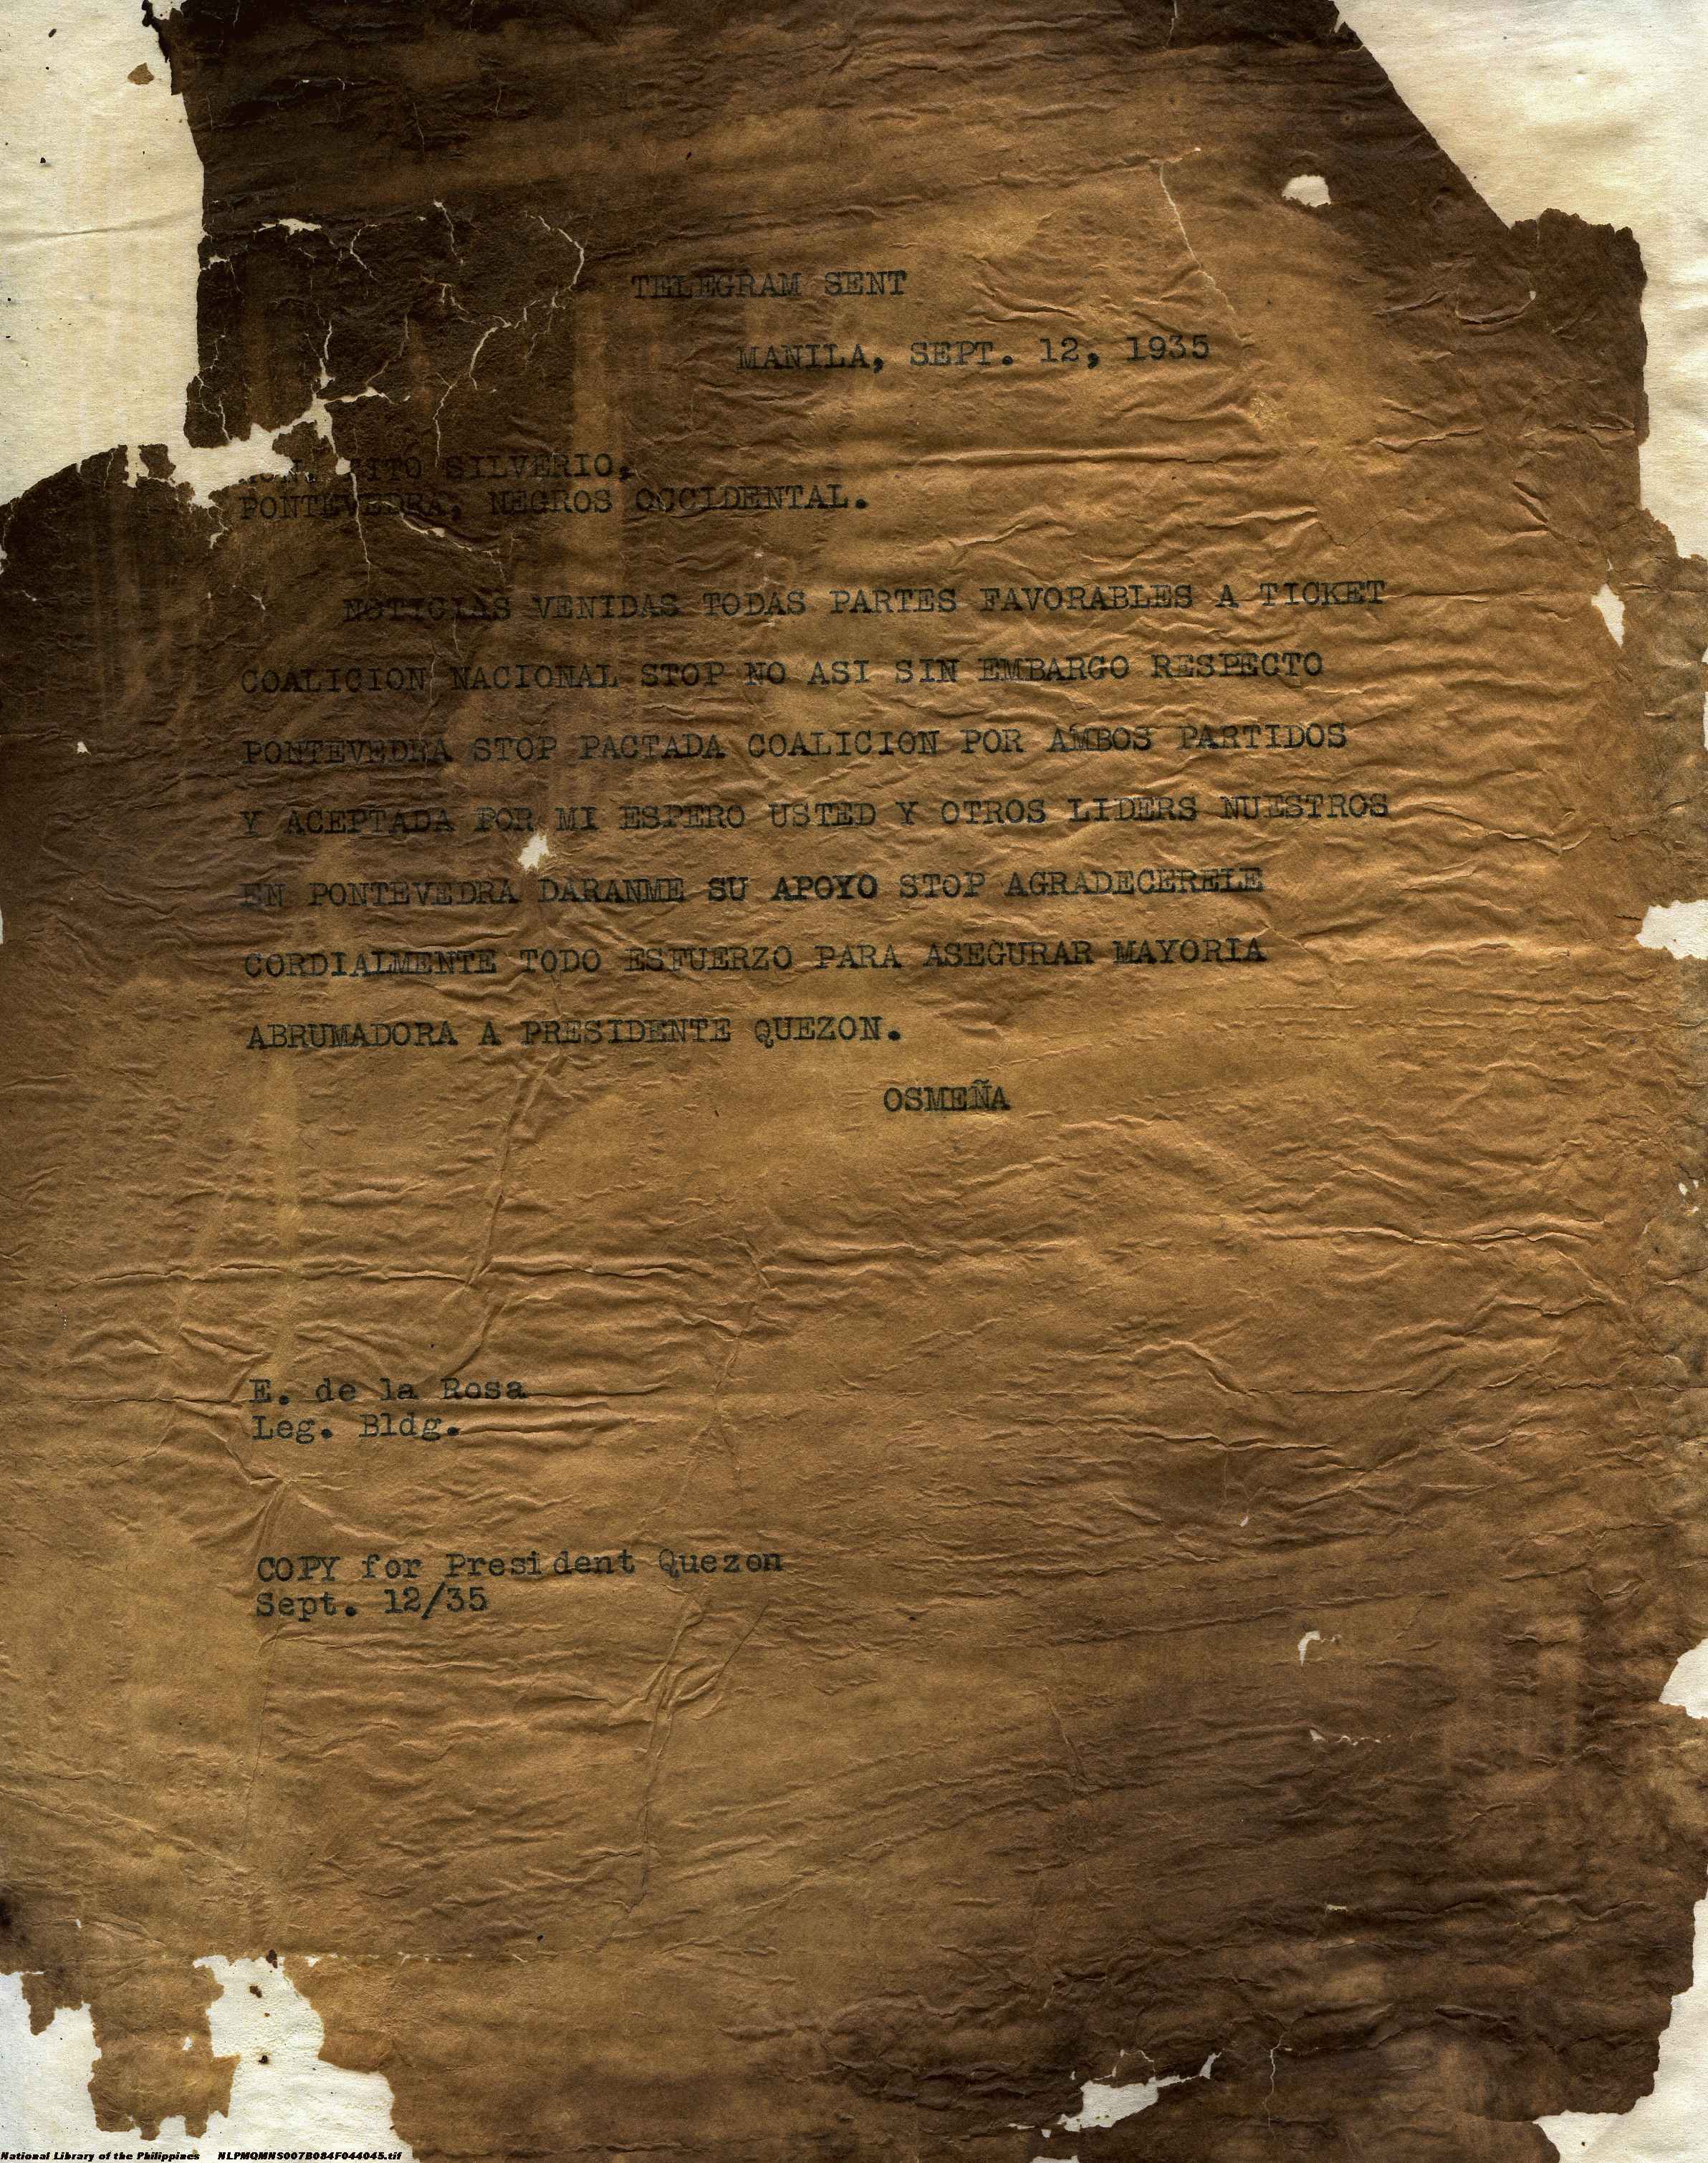 TELEGRAM SENT
MANILA, SEPT. 12, 1935
SILVERIO,
PONTEVEDRA, NEGROS OCCIDENTAL.
NOTICIAS VENIDAS TODAS PARTES FAVORABLES A TICKET
COALICION NACIONAL STOP NO ASI SIN EMBARGO RESPECTO
PONTEVEDRA STOP PACTADA COALICION POR AMBOS PARTIDOS
Y ACEPTADA POR MI ESPERO USTED Y OTROS LIDERS NUESTROS
EN PONTEVEDRA DARANME SU APOYO STOP AGRADECERELE
CORDIALMENTE TODO ESFUERZO PARA ASEGURAR MAYORIA
ABRUMADORA A PRESIDENTE QUEZON.
OSMEÑA
E. de la Rosa
Leg. Bldg.
COPY for President Quezon
Sept. 12/35
National Library of the Philippines NLPMQMNS007B084F044045.tif